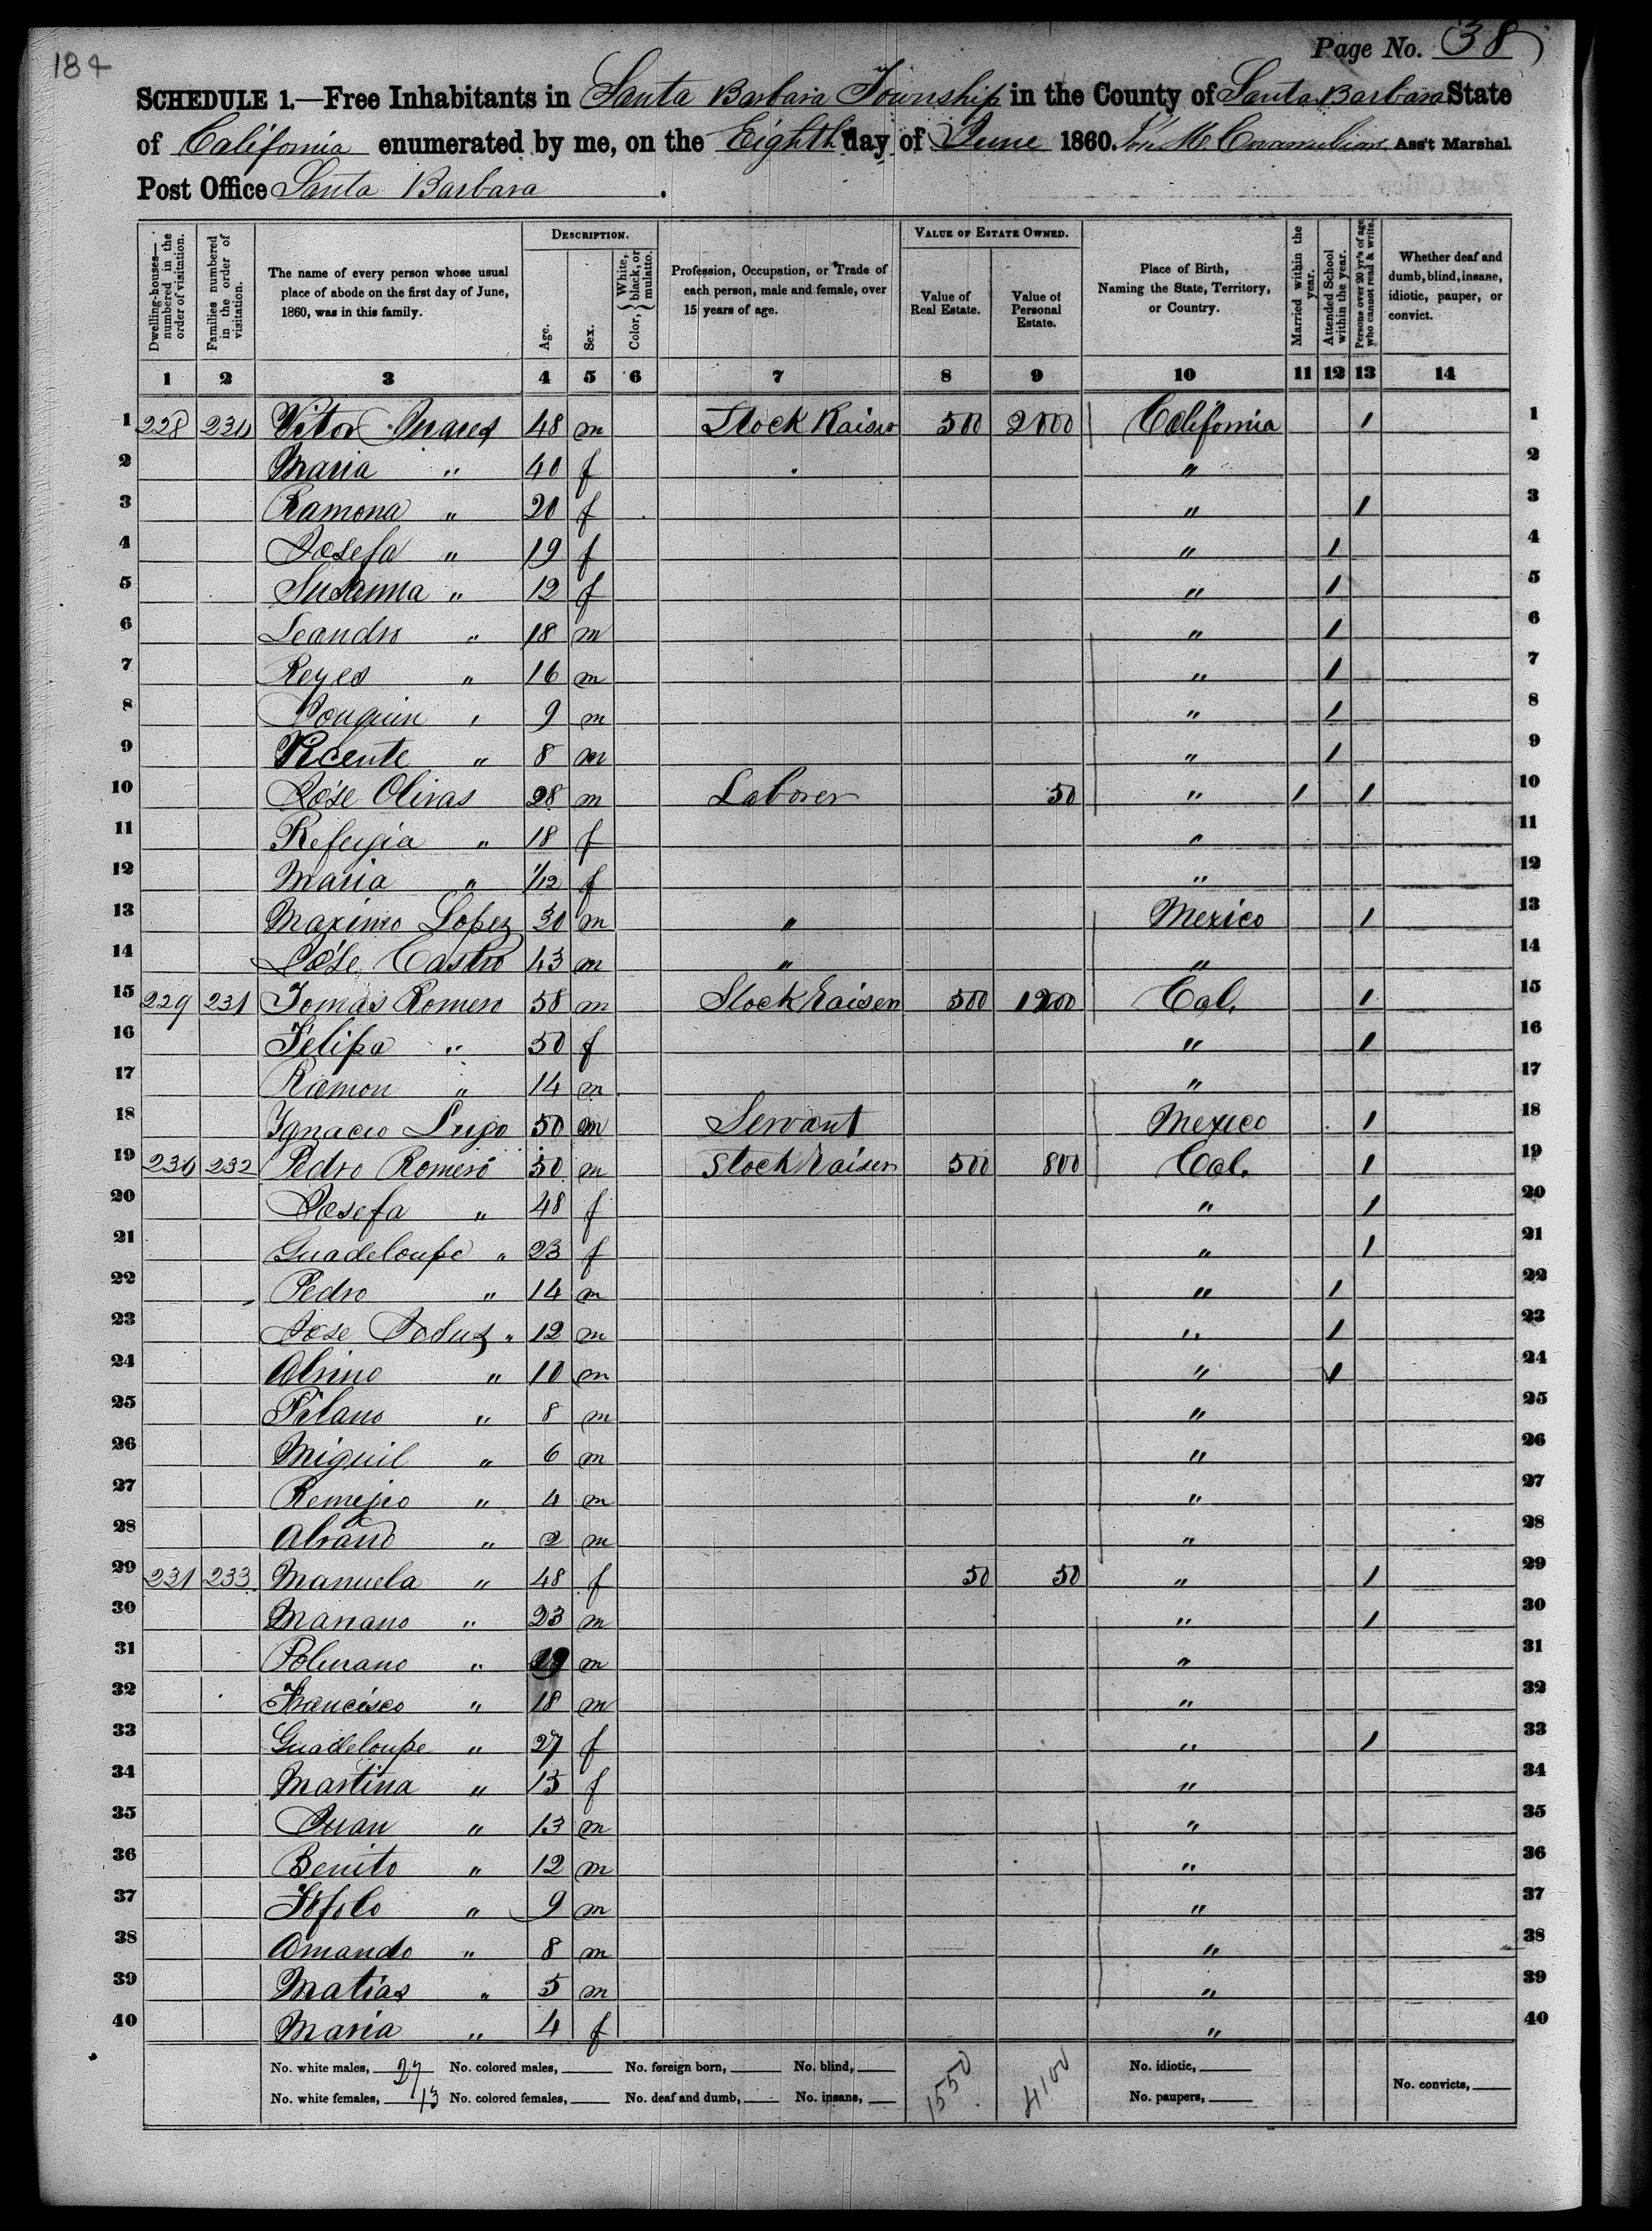 184
Page No. 38
SCHEDULE 1.—Free Inhabitants in Santa Barbara Township in the County of Santa Barbara State
of California enumerated by me, on the Eighth day of June 1860. Ass't Marshal.
Post Office Santa Barbara.
Dwelling-houses—numbered in the order of visitation. Families numbered in the order of visitation. The name of every person whose usual place of abode on the first day of June, 1860, was in this family. DESCRIPTION. Age. Sex. Color, { White, black, or mulatto. Profession, Occupation, or Trade of each person, male and female, over 15 years of age. VALUE OF ESTATE OWNED. Value of Real Estate. Value of Personal Estate. Place of Birth, Naming the State, Territory, or Country. Married within the year. Attended School within the year. Persons over 20 yr's of age who cannot read & write. Whether deaf and dumb, blind, insane, idiotic, pauper, or convict.
1 2 3 4 5 6 7 8 9 10 11 12 13 14
1 228 230 Vitor 48 m Stock Raiser 500 2000 California / 1
2 Maria " 40 f " 2
3 Ramona " 20 f " / 3
4 Josefa " 19 f " / 4
5 Susanna " 12 f " / 5
6 Leandro " 18 m " / 6
7 Reyes " 16 m " / 7
8 Joaquin " 9 m " / 8
9 Vicente " 8 m " / 9
10 José Olivas 28 m Laborer 50 " / / 10
11 Refugia " 18 f " 11
12 Maria " 1/12 f " 12
13 Maximo Lopez 30 m " Mexico / 13
14 José Castro 43 m " " 14
15 229 231 Tomas Romero 58 m Stock Raiser 500 1200 Cal. / 15
16 Felipa " 50 f " / 16
17 Ramon " 14 m " 17
18 Ignacio Lugo 50 m Servant Mexico / 18
19 230 232 Pedro Romero 50 m Stock Raiser 500 800 Cal. / 19
20 Josefa " 48 f " / 20
21 Guadeloupe " 23 f " / 21
22 Pedro " 14 m " / 22
23 Jose " 12 m " / 23
24 " 10 m " / 24
25 " 8 m " 25
26 Miguil " 6 m " 26
27 Remejio " 4 m " 27
28 " 2 m " 28
29 231 233 Manuela " 48 f 50 50 " / 29
30 Mariano " 23 m " / 30
31 " 19 m " 31
32 Francisco " 18 m " 32
33 Guadeloupe " 27 f " / 33
34 Martina " 15 f " 34
35 Juan " 13 m " 35
36 Benito " 12 m " 36
37 " 9 m " 37
38 Amando " 8 m " 38
39 Matias " 5 m " 39
40 Maria " 4 f " 40
No. white males, 27 No. colored males, No. foreign born, No. blind, 1550 4100 No. idiotic,
No. white females, 13 No. colored females, No. deaf and dumb, No. insane, No. paupers, No. convicts,